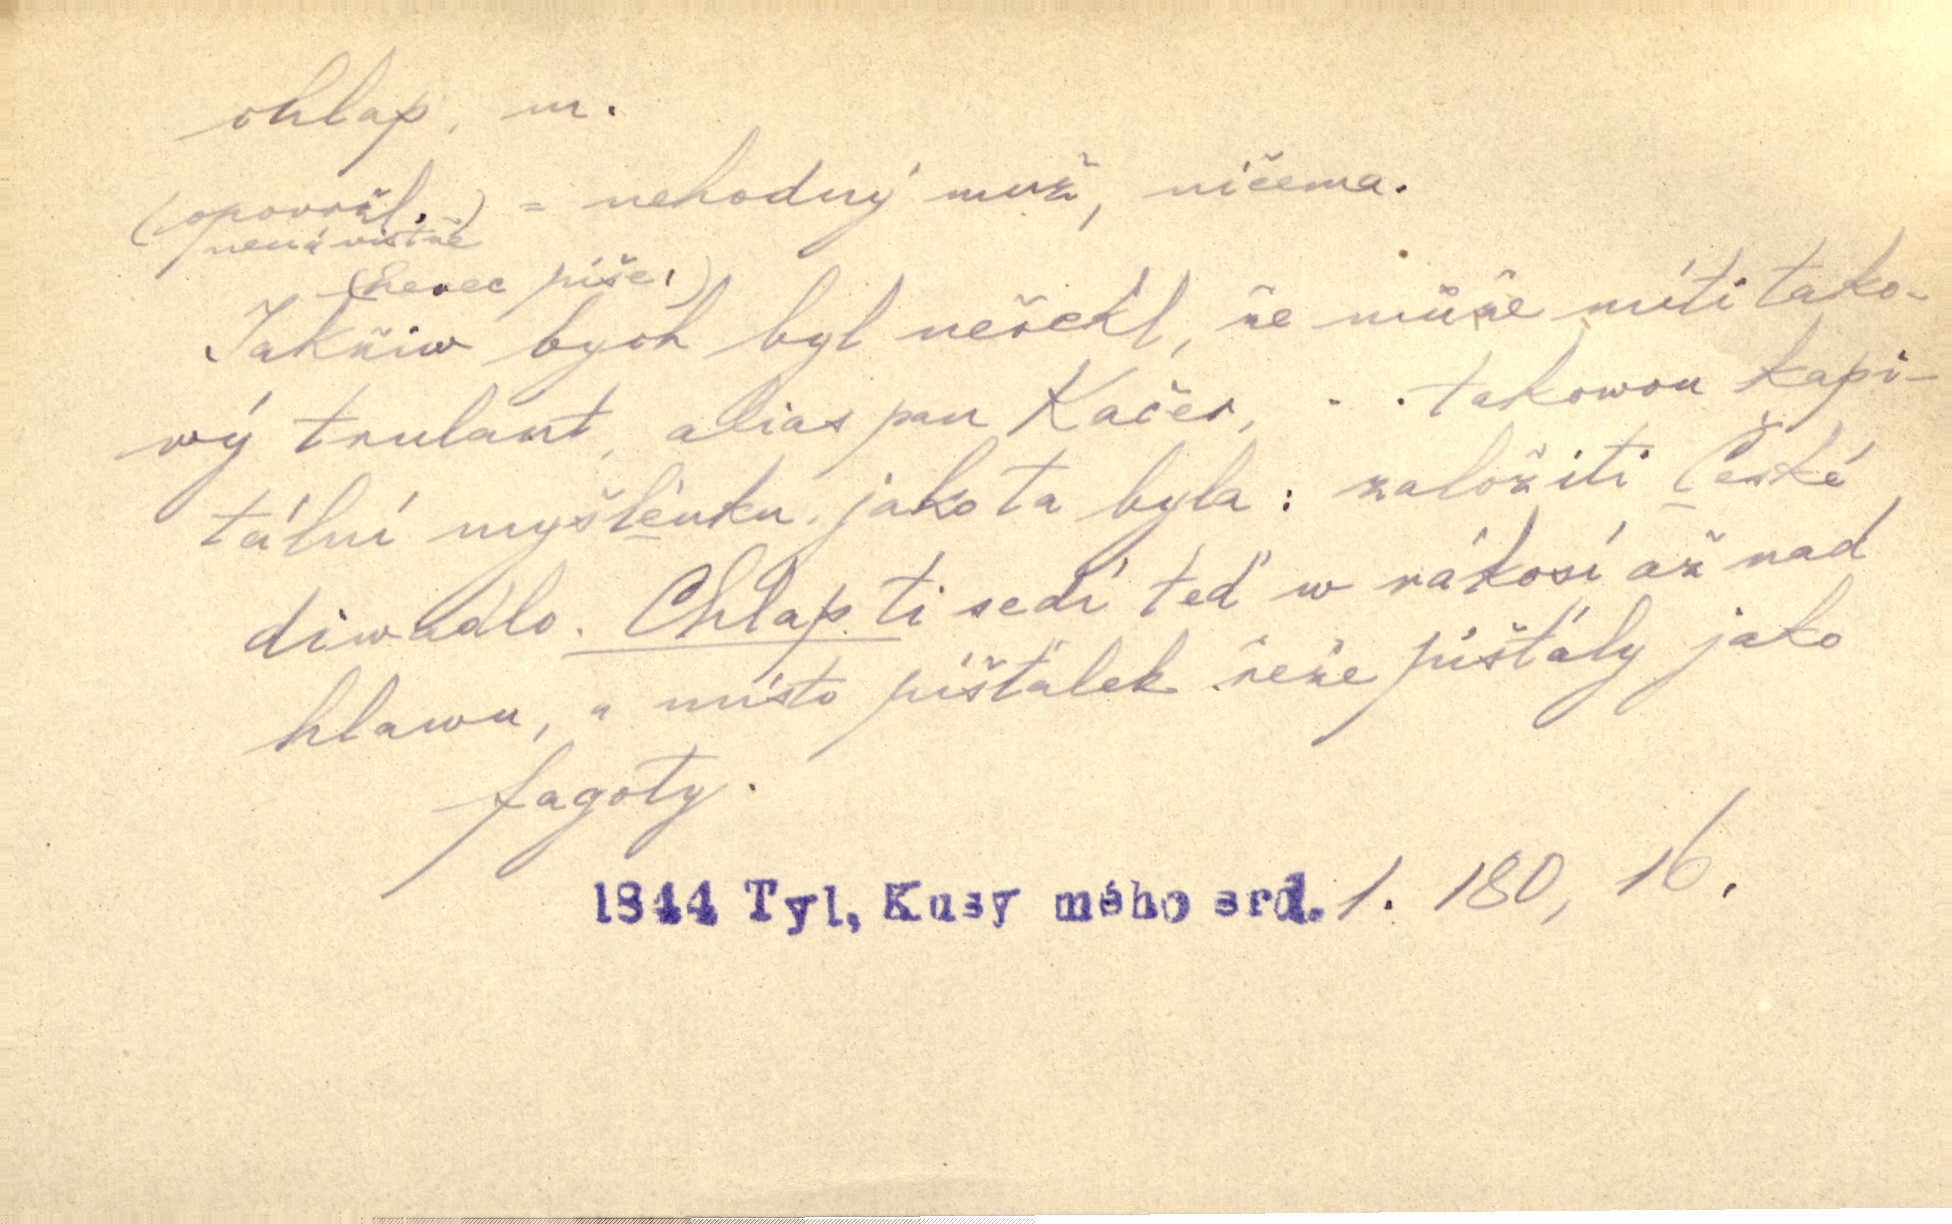 chlap, m.
(opovržl., = nehodný muž, ničema.
nenávistně)
(herec píše:)
Jakživ bych byl neřekl, že může míti tako-
wý trulant, alias pan Kačer, . . takowou kapi-
tální myšlénku, jako ta byla: založiti České
diwadlo. Chlap ti sedí teď w rákosí až nad
hlawu, a místo píšťalek řeže píšťaly jako
fagoty.
1844 Tyl, Kusy mého srd. 1. 180, 16.